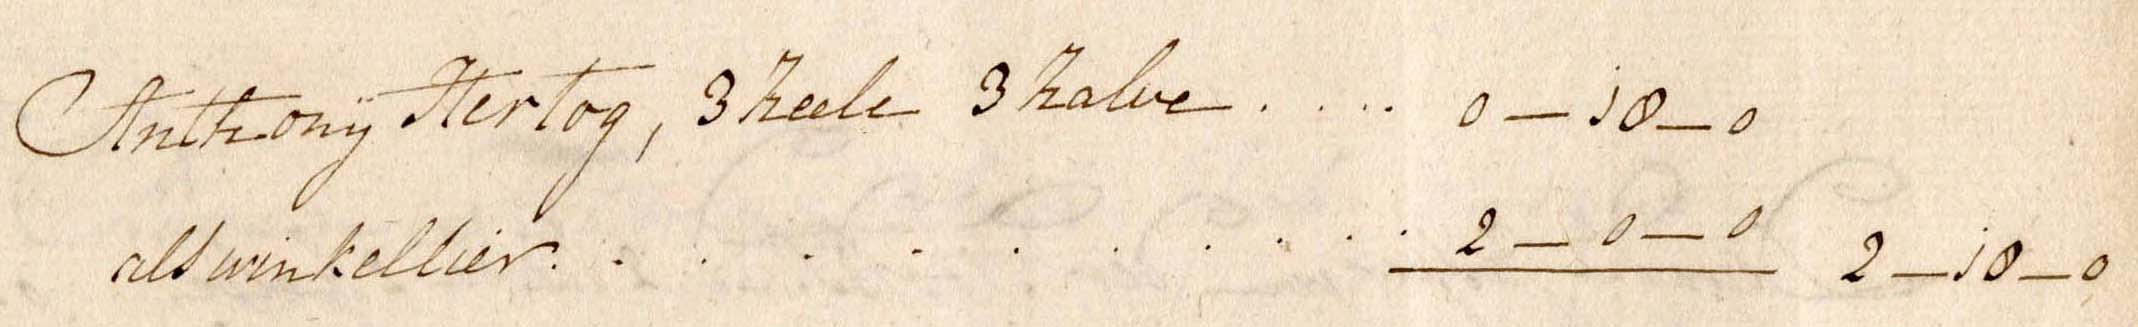 Anthonÿ Hertog, 3 heele 3 halve .... 0 - 18 - 0
als winkellier. . . . . . . . . . 2 - 0 - 0 2 - 18 - 0